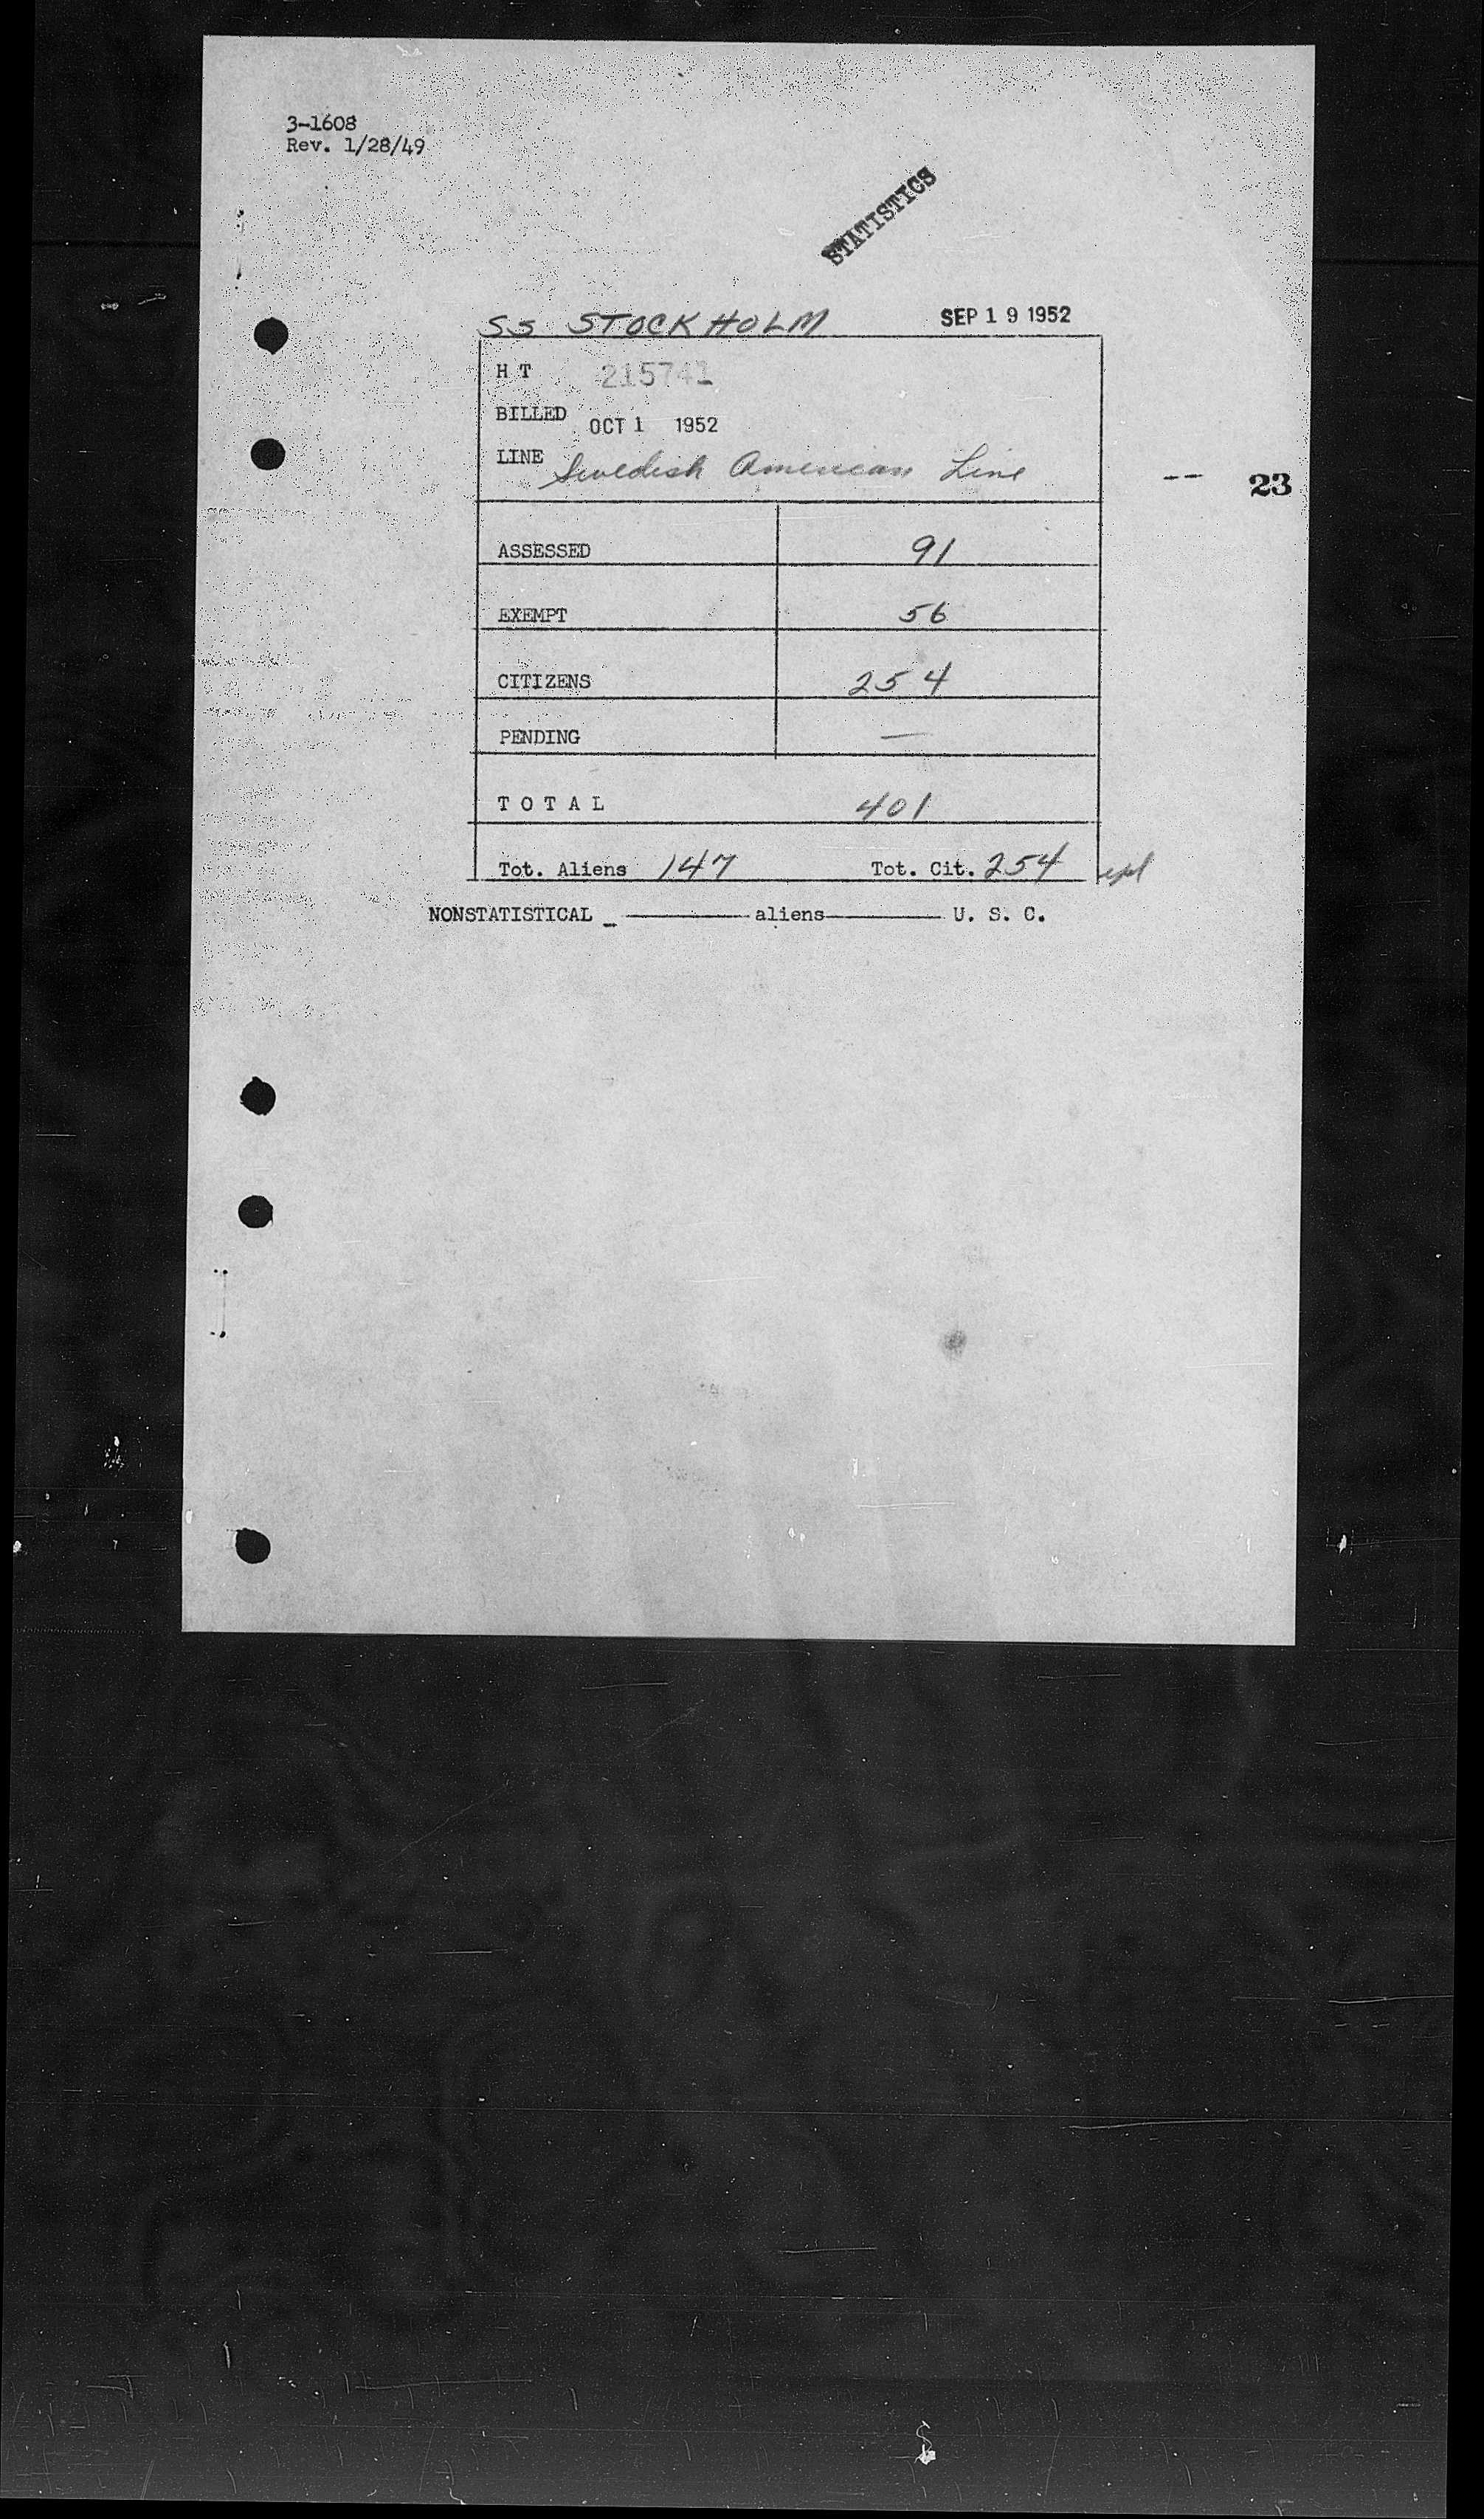 3-1608
Rev. 1/28/49
STATISTICS
SS STOCKHOLM SEP 19 1952
H T 215741
BILLED OCT 1 1952
LINE Swedish American Line
-- 23
ASSESSED 91
EXEMPT 56
CITIZENS 254
PENDING —
T O T A L 401
Tot. Aliens 147 Tot. Cit. 254
NONSTATISTICAL _ ———— aliens———— U. S. C.